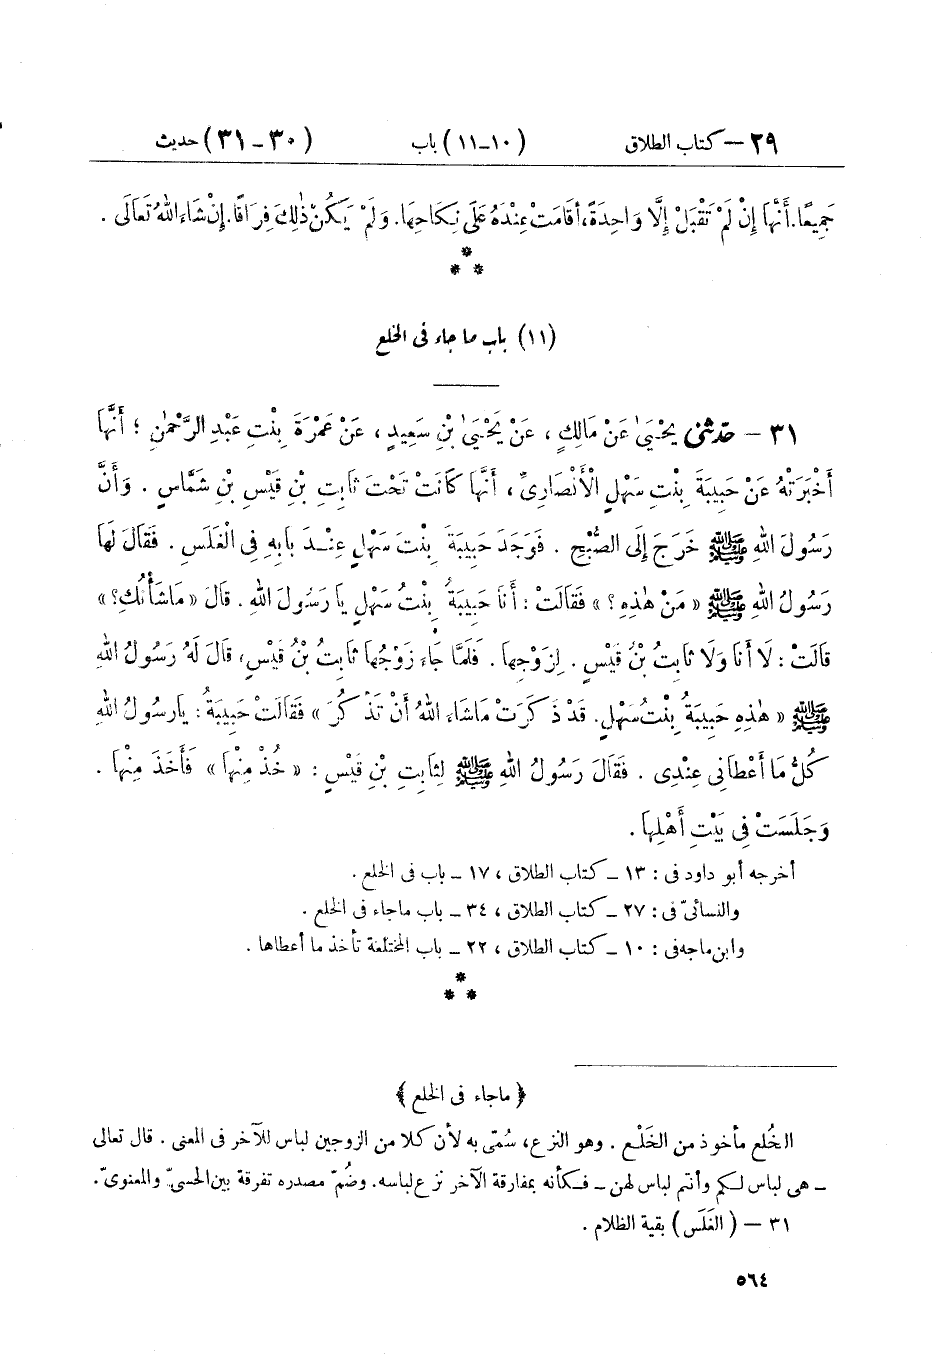 ٢٩ – كتاب الطلاق (١٠-١١) باب (٣٠-٣١) حديث
جَمِيعًا. أَنَّهَا إِنْ لَمْ تَقْبَلْ إِلَّا وَاحِدَةً، أَقَامَتْ عِنْدَهُ عَلَى نِكَاحِهَا. وَلَمْ يَكُنْ ذٰلِكَ فِرَاقًا. إِنْ شَاءَ اللهُ تَعَالَى .
*
* *
(١١) باب ما جاء فى الخلع
٣١ – حَدَّثَنِى يَحْيَىٰ عَنْ مَالِكٍ ، عَنْ يَحْيَىٰ بْنِ سَعِيدٍ ، عَنْ عَمْرَةَ بِنْتِ عَبْدِ الرَّحْمٰنِ ؛ أَنَّهَا
أَخْبَرَتْهُ عَنْ حَبِيبَةَ بِنْتِ سَهْلٍ الْأَنْصَارِىِّ ، أَنَّهَا كَانَتْ تَحْتَ ثَابِتِ بْنِ قَيْسِ بْنِ شَمَّاسٍ . وَأَنَّ
رَسُولَ اللهِ ﷺ خَرَجَ إِلَى الصُّبْحِ . فَوَجَدَ حَبِيبَةَ بِنْتَ سَهْلٍ عِنْدَ بَابِهِ فِى الْغَلَسِ . فَقَالَ لَهَا
رَسُولُ اللهِ ﷺ « مَنْ هٰذِهِ ؟ » فَقَالَتْ : أَنَا حَبِيبَةُ بِنْتُ سَهْلٍ يَا رَسُولَ اللهِ . قَالَ « مَا شَأْنُكِ؟ »
قَالَتْ : لَا أَنَا وَلَا ثَابِتُ بْنُ قَيْسٍ . لِزَوْجِهَا . فَلَمَّا جَاءَ زَوْجُهَا ثَابِتُ بْنُ قَيْسٍ، قَالَ لَهُ رَسُولُ اللهِ
ﷺ « هٰذِهِ حَبِيبَةُ بِنْتُ سَهْلٍ. قَدْ ذَكَرَتْ مَا شَاءَ اللهُ أَنْ تَذْكُرَ » فَقَالَتْ حَبِيبَةُ : يَا رَسُولَ اللهِ
كُلُّ مَا أَعْطَانِى عِنْدِى . فَقَالَ رَسُولُ اللهِ ﷺ لِثَابِتِ بْنِ قَيْسٍ : « خُذْ مِنْهَا » فَأَخَذَ مِنْهَا .
وَجَلَسَتْ فِى بَيْتِ أَهْلِهَا .
أخرجه أبو داود فى : ١٣ – كتاب الطلاق ، ١٧ – باب فى الخلع .
والنسائىّ فى : ٢٧ – كتاب الطلاق ، ٣٤ – باب ماجاء فى الخلع .
وابن ماجه فى : ١٠ – كتاب الطلاق ، ٢٢ – باب المختلعة تأخذ ما أعطاها .
*
* *
﴿ ماجاء فى الخلع ﴾
الخُلع مأخوذ من الخَلْع . وهو النزع، سُمّى به لأن كلا من الزوجين لباس للآخر فى المعنى . قال تعالى
– هى لباس لكم وأنتم لباس لهن – فكأنه بمفارقة الآخر نزع لباسه. وضُمّ مصدره تفرقة بين الحسىّ والمعنوىّ.
٣١ – ( الغَلَس ) بقية الظلام .
٥٦٤